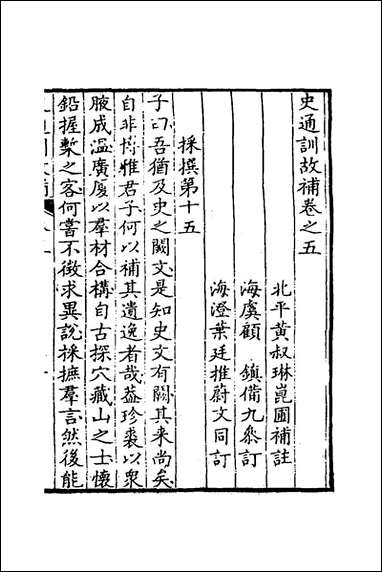 史通訓故補卷之五
北平黃叔琳崑圃補註
海虞顧　鎮備九參訂
海澄葉廷推蔚文同訂
採撰第十五
子曰吾猶及史之闕文是知史文有闕其来尚矣
自非博雅君子何以補其遺逸者哉葢珍裘以衆
腋成温廣厦以羣材合構自古探穴藏山之士懷
鉛握槧之客何嘗不徵求異說採摭羣言然後能